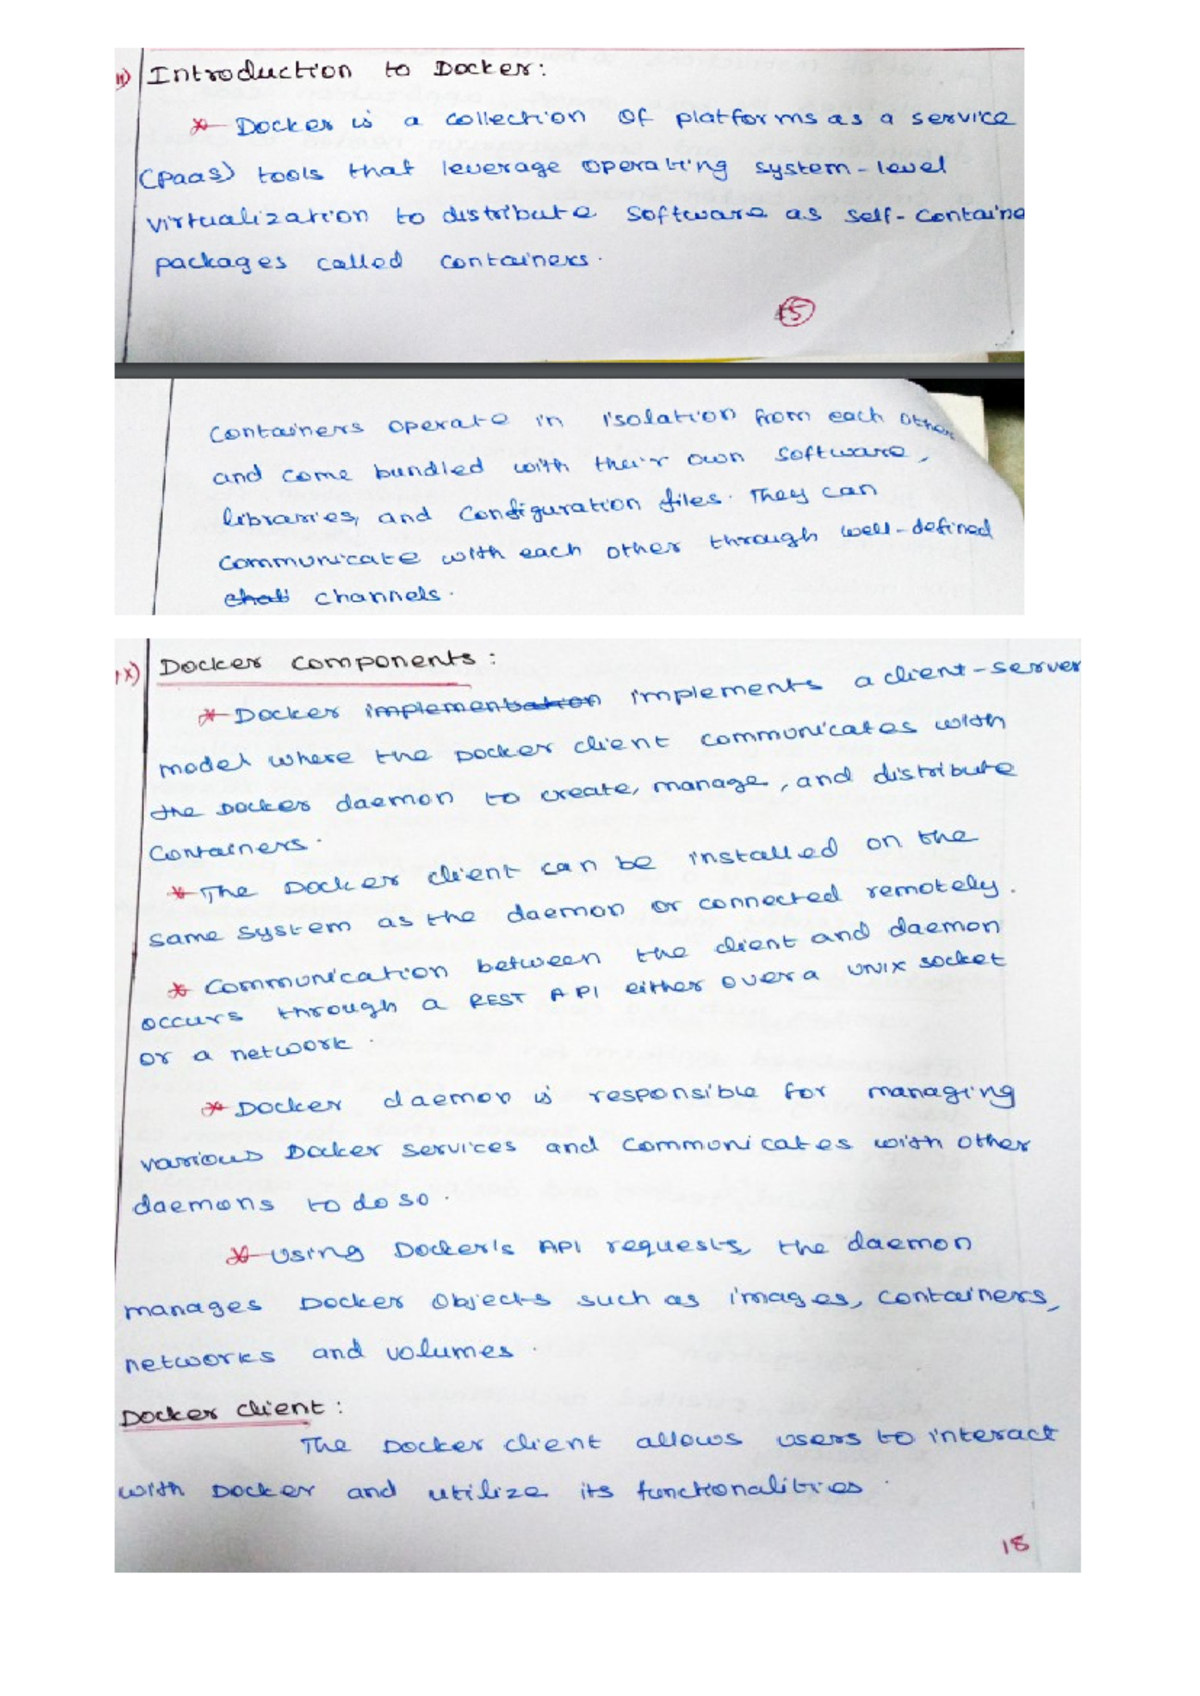 11) Introduction to Docker:
* Docker is a collection of platforms as a service
(paas) tools that leverage operating system-level
virtualization to distribute software as self-containe
packages called containers.
15
Containers operate in isolation from each other
and come bundled with their own software,
libraries, and configuration files. They can
communicate with each other through well-defined
channels.
ix) Docker components:
* Docker implementation implements a client-server
model where the Docker client communicates with
the Docker daemon to create, manage, and distribute
containers.
* The Docker client can be installed on the
same system as the daemon or connected remotely.
* Communication between the client and daemon
occurs through a REST API either over a UNIX socket
or a network.
* Docker daemon is responsible for managing
various Docker services and communicates with other
daemons to do so.
* Using Docker's API requests, the daemon
manages Docker objects such as images, containers,
networks and volumes.
Docker client:
The Docker client allows users to interact
with Docker and utilize its functionalities.
18